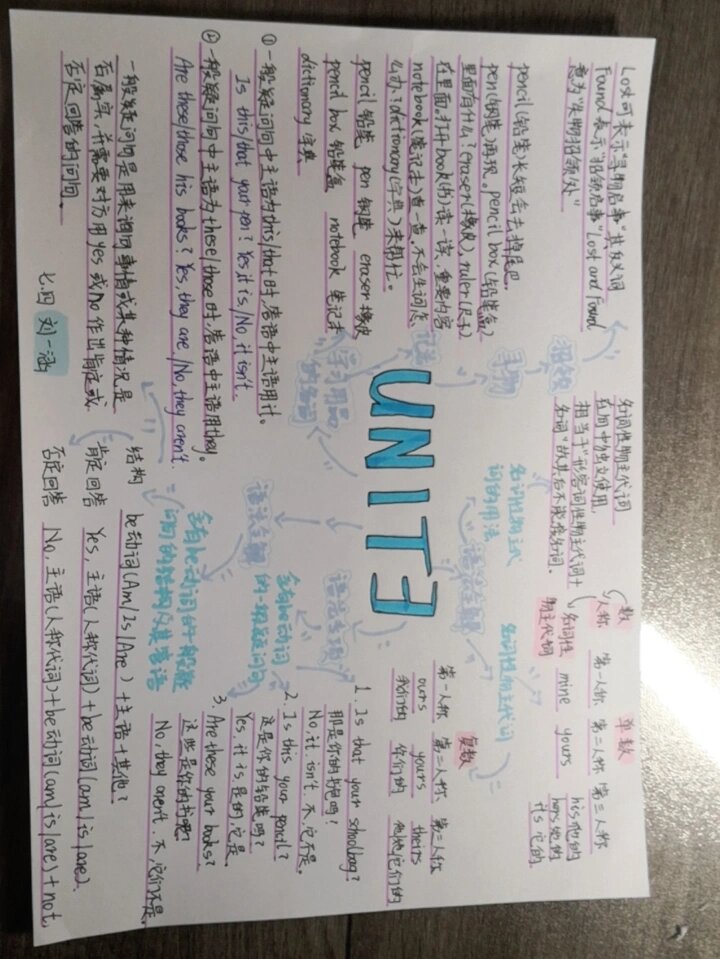 Lost可表示"寻物启事"其反义词
Found表示"招领启事"Lost and Found
意为"失物招领处"
招领
寻物
pencil(铅笔)长短会去掉尾巴
pen(钢笔)再现。pencil box(铅笔盒)
里面有什么?eraser(橡皮),ruler(尺子)
在里面。打开book(书)读一读,重要内容
notebook(笔记本)查一查。不会生词怎
么办?dictionary(字典)来帮忙。
pencil 铅笔 pen 钢笔 eraser 橡皮
pencil box 铅笔盒 notebook 笔记本
dictionary 字典
学习用品
的名词
UNIT3
名词性物主代词
在句中独立使用,
相当于"形容词性物主代词+
名词"故其后不能接名词。
名词性物主代
词的用法
语法全解
名词性物主代词
数
人称
名词性
物主代词
单数
第一人称 第二人称 第三人称
mine yours his他的
hers她的
its它的
复数
第一人称 第二人称 第三人称
ours yours theirs
我们的 你们的 他她它们的
①一般疑问句中主语为this/that时,答语中主语用it.
Is this/that your pen? Yes, it is/No, it isn't.
②一般疑问句中主语为these/those时,答语中主语用they。
Are these/those his books? Yes, they are/No, they aren't.
语法全解
含有be动词
的一般疑问句
1. Is that your schoolbag?
那是你的书包吗?
No, it isn't. 不,它不是。
2. Is this your pencil?
这是你的铅笔吗?
Yes, it is, 是的,它是.
3. Are these your books?
这些是你的书吗?
No, they aren't. 不,它们不是.
一般疑问句是用来询问事情或某种情况是
否属实,并需要对方用yes或no作出肯定或
否定回答的问句。
七.四 刘一涵
含有be动词的一般疑
问句的结构及其答语
结构 be动词(Am/Is/Are)+主语+其他?
肯定回答 Yes, 主语(人称代词)+be动词(am/is/are).
否定回答 No, 主语(人称代词)+be动词(am/is/are)+not.